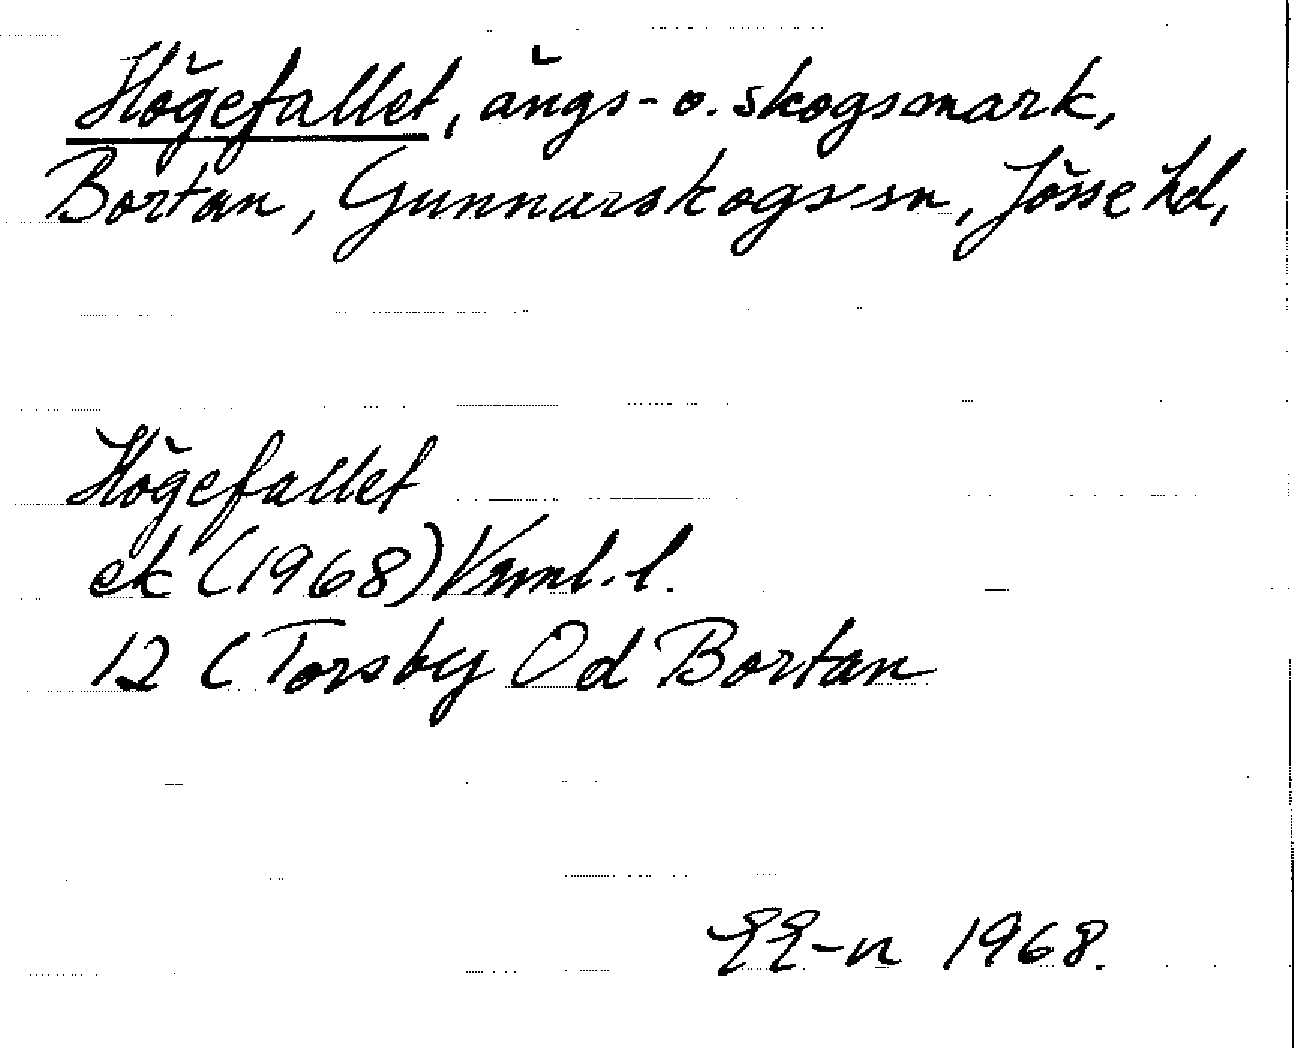 Högefallet, ängs- o. skogsmark,
Bortan, Gunnarskogs sn, Jösse hd,
Högefallet
ek (1968) Vrml. l.
12 C Torsby 0d Bortan
EE-n 1968.